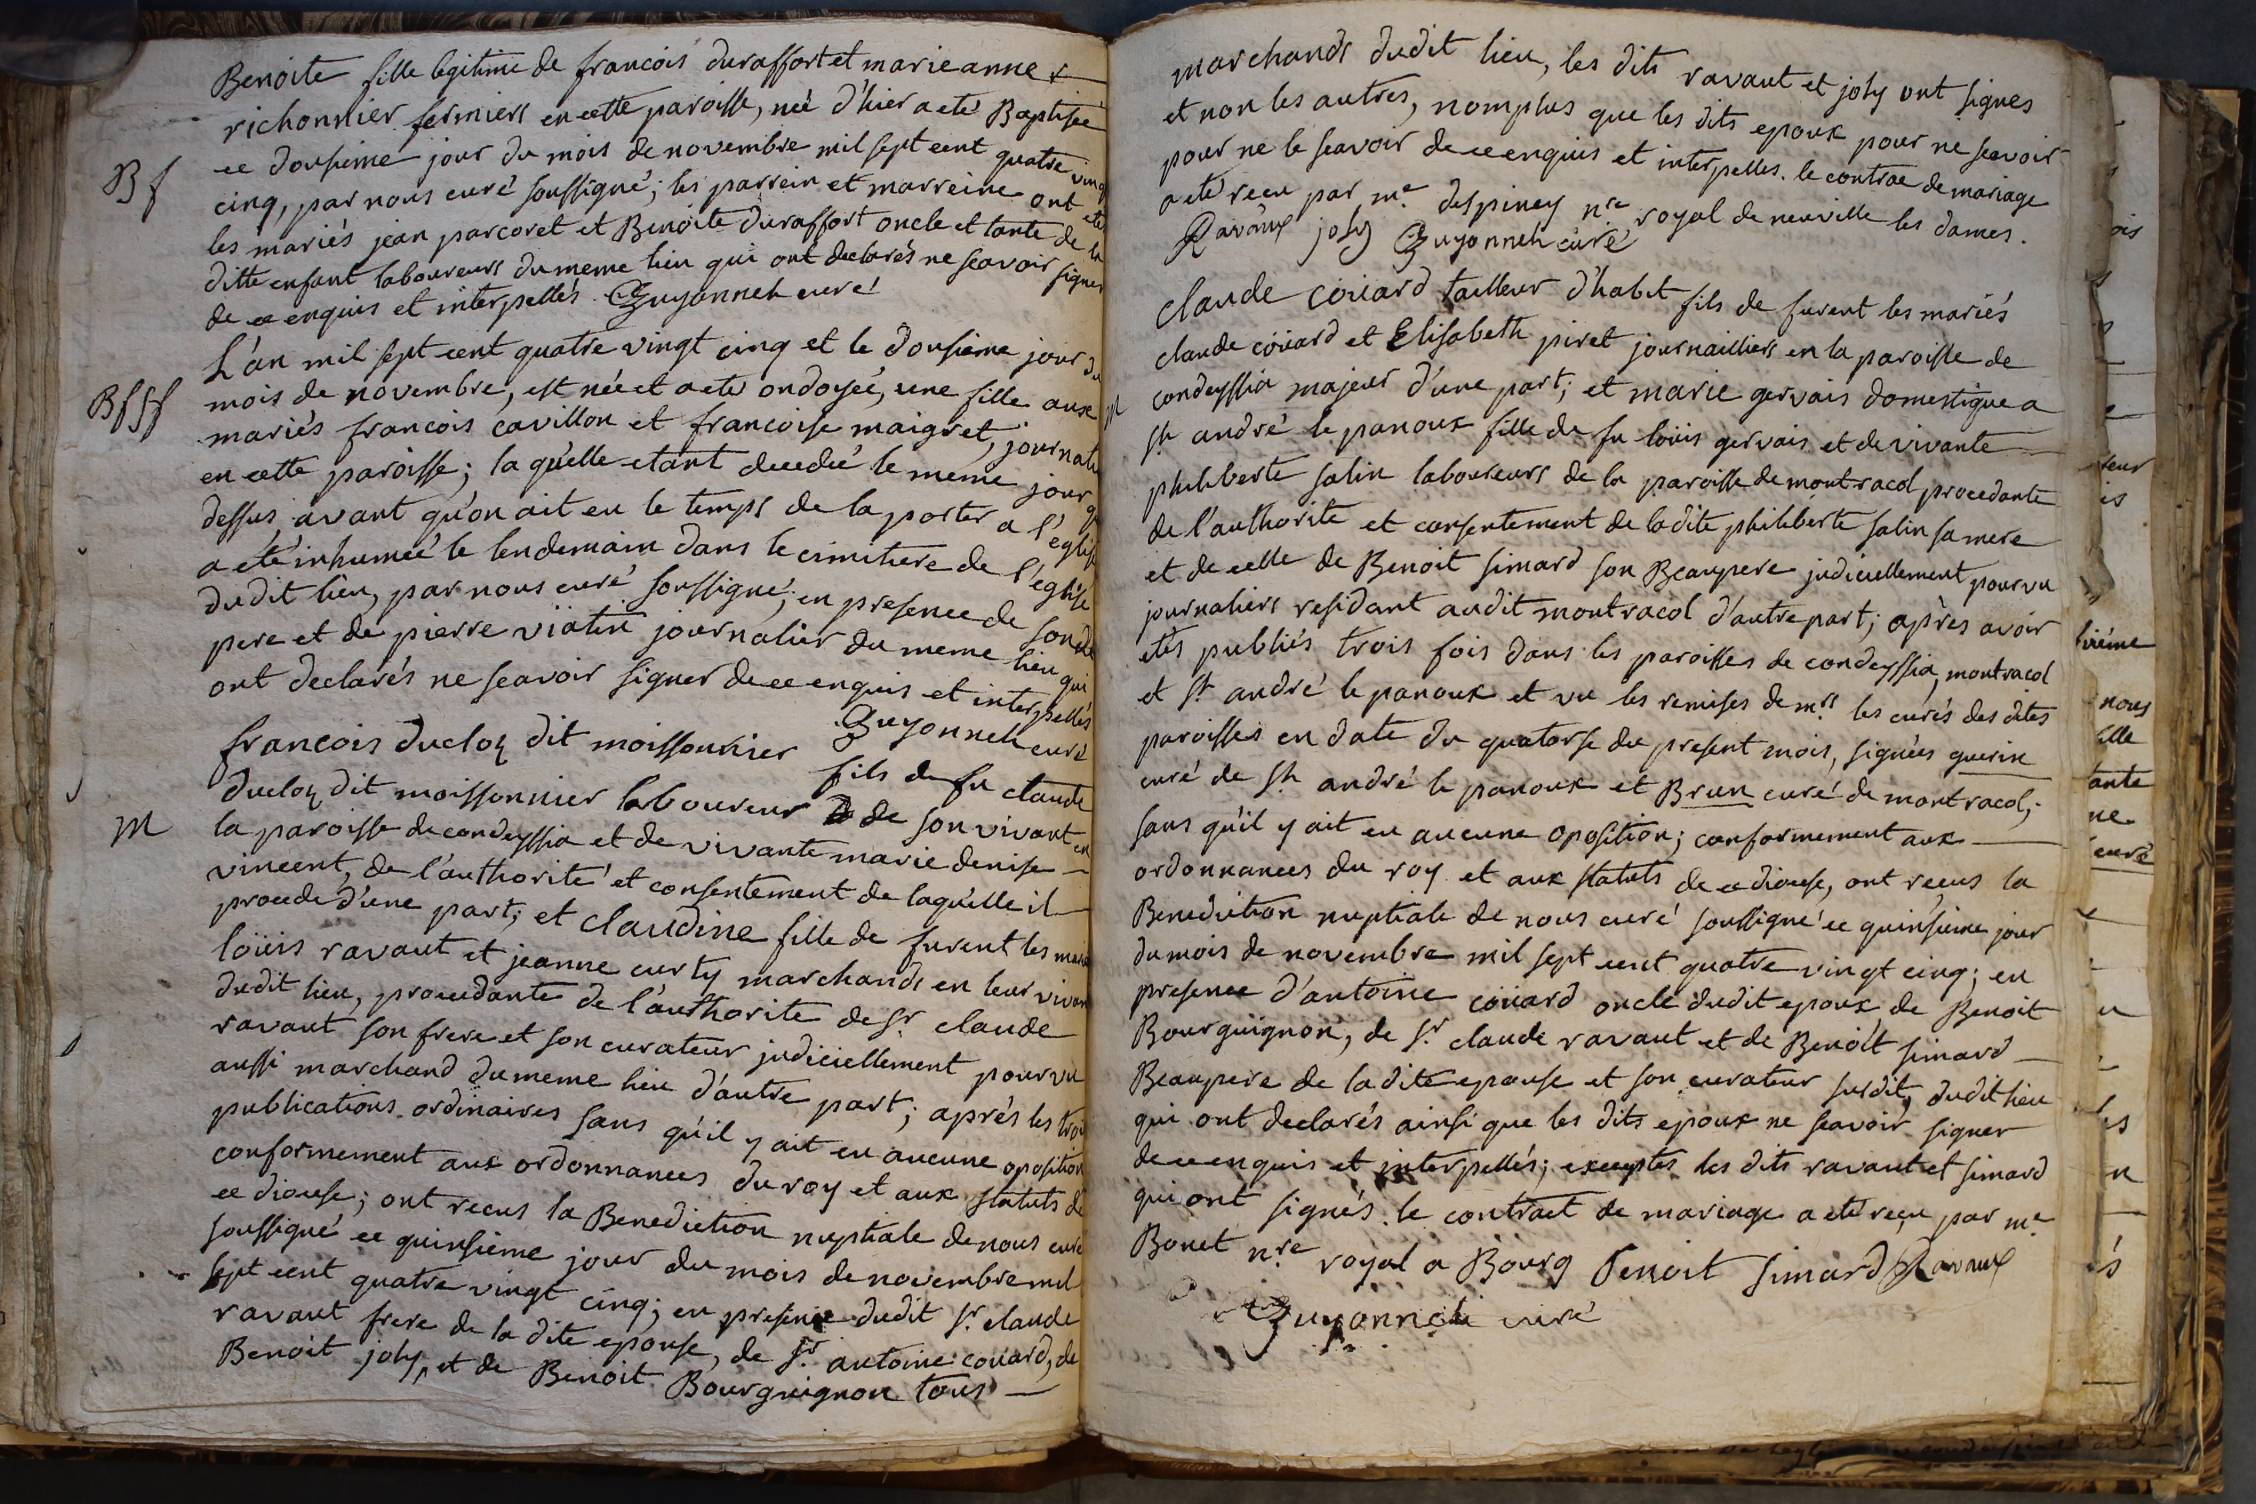 Benoite fille legitime de francois duraffort et marie anne
richonnier fermiers en cette paroisse, neé d'hier a eté Baptisée
Bf
ce dousieme jour du mois de novembre mil sept cent quatre vingt
cinq, par nous curé soussigné; les parrein et marreine ont eté
les mariés jean parcoret et Benoite duraffort oncle et tante de la
ditte enfant laboureurs du meme lieu qui ont declarés ne scavoir signer
de ce enquis et interpellés. Guyonneh curé
L'an mil sept cent quatre vingt cinq et le dousieme jour du
Bfsf
mois de novembre, est née et a eté ondoyée, une fille aux
mariés francois cavillon et francoise maigret, journali
en cette paroisse; la qu'elle etant decedeé le meme jour que
dessus avant qu'on ait eu le temps de la porter a l'eglise
a eté inhumeé le lendemain dans le cimitiere de l'église
dudit lieu, par nous curé soussigné; en presence de son dit
pere et de pierre viatin journalier du meme lieu qui
ont declarés ne scavoir signer de ce enquis et interpellés
Guyonneh curé
francois ducloz dit moissonnier fils de fu claude
ducloz dit moissonnier laboureur de son vivant en
M
la paroisse de condeyssia et de vivante marie denise
vincent, de l'authorité et consentement de laqu'elle il
procede d'une part; et claudine fille de furent les mariés
loüis ravaut et jeanne curty marchands en leur vivant
dudit lieu, procedante de l'authorite de sr claude
ravaut son frere et son curateur judiciellement pourvu
aussi marchand du meme lieu d'autre part; aprés les trois
publications ordinaires sans qu'il y ait eu aucune oposition
conformement aux ordonnances du roy et aux statuts de
ce diocese; ont recus la Benediction nuptiale de nous curé
soussigné ce quinsieme jour du mois de novembre mil
sept cent quatre vingt cinq; en presence dudit sr. claude
ravaut frere de la dite epouse, de sr. antoine coüard, de
Benoit joly, et de Benoit Bourguignon tous
marchands dudit lieu, les dits ravaut et joly ont signés
et non les autres, nomplus que les dits epoux pour ne scavoir
pour ne le scavoir de ce enquis et interpellés. le contrac de mariage
a eté recu par me. despiney nre royal de neuville les dames.
Ravaux joly Guyonneh curé
claude coüard tailleur d'habit fils de furent les mariés
claude coüard et Elisabeth piret journailliers en la paroisse de
M
condeyssia majeur d'une part; et marie gervais domestique a
st andré le panoux fille de fu loüis gervais et de vivante
philiberte salin laboureurs de la paroisse de montracol procedante
de l'authorite et consentement de ladite philiberte salin sa mere
et de celle de Benoit simard son Beaupere judiciellement pourvu
journaliers residant audit montracol d'autre part; après avoir
etés publiés trois fois dans les paroisses de condeyssia, montracol
et st andré le panoux et vu les remises de mrs les curés des dites
paroisses en date du quatorse du present mois, signées guerin
curé de st andré le panoux et Brun curé de montracol;
sans qu'il y ait eu aucune oposition; conformement aux
ordonnances du roy et aux statuts de ce diocese, ont recus la
Benediction nuptiale de nous curé soussigné ce quinsieme jour
du mois de novembre mil sept cent quatre vingt cinq; en
presence d'antoine coüard oncle dudit epoux de Benoit
Bourguignon, de sr. claude ravaut et de Benoit simard
Beaupere de la dite epouse et son curateur susdit, dudit lieu
qui ont declarés ainsi que les dits epoux ne scavoir signer
de ce enquis et interpellés; exceptés les dits ravaut et simard
qui ont signés. le contract de mariage a eté reçu par me.
Bonet nre royal a Bourg Benoit simard Ravaux
Guyonneh curé